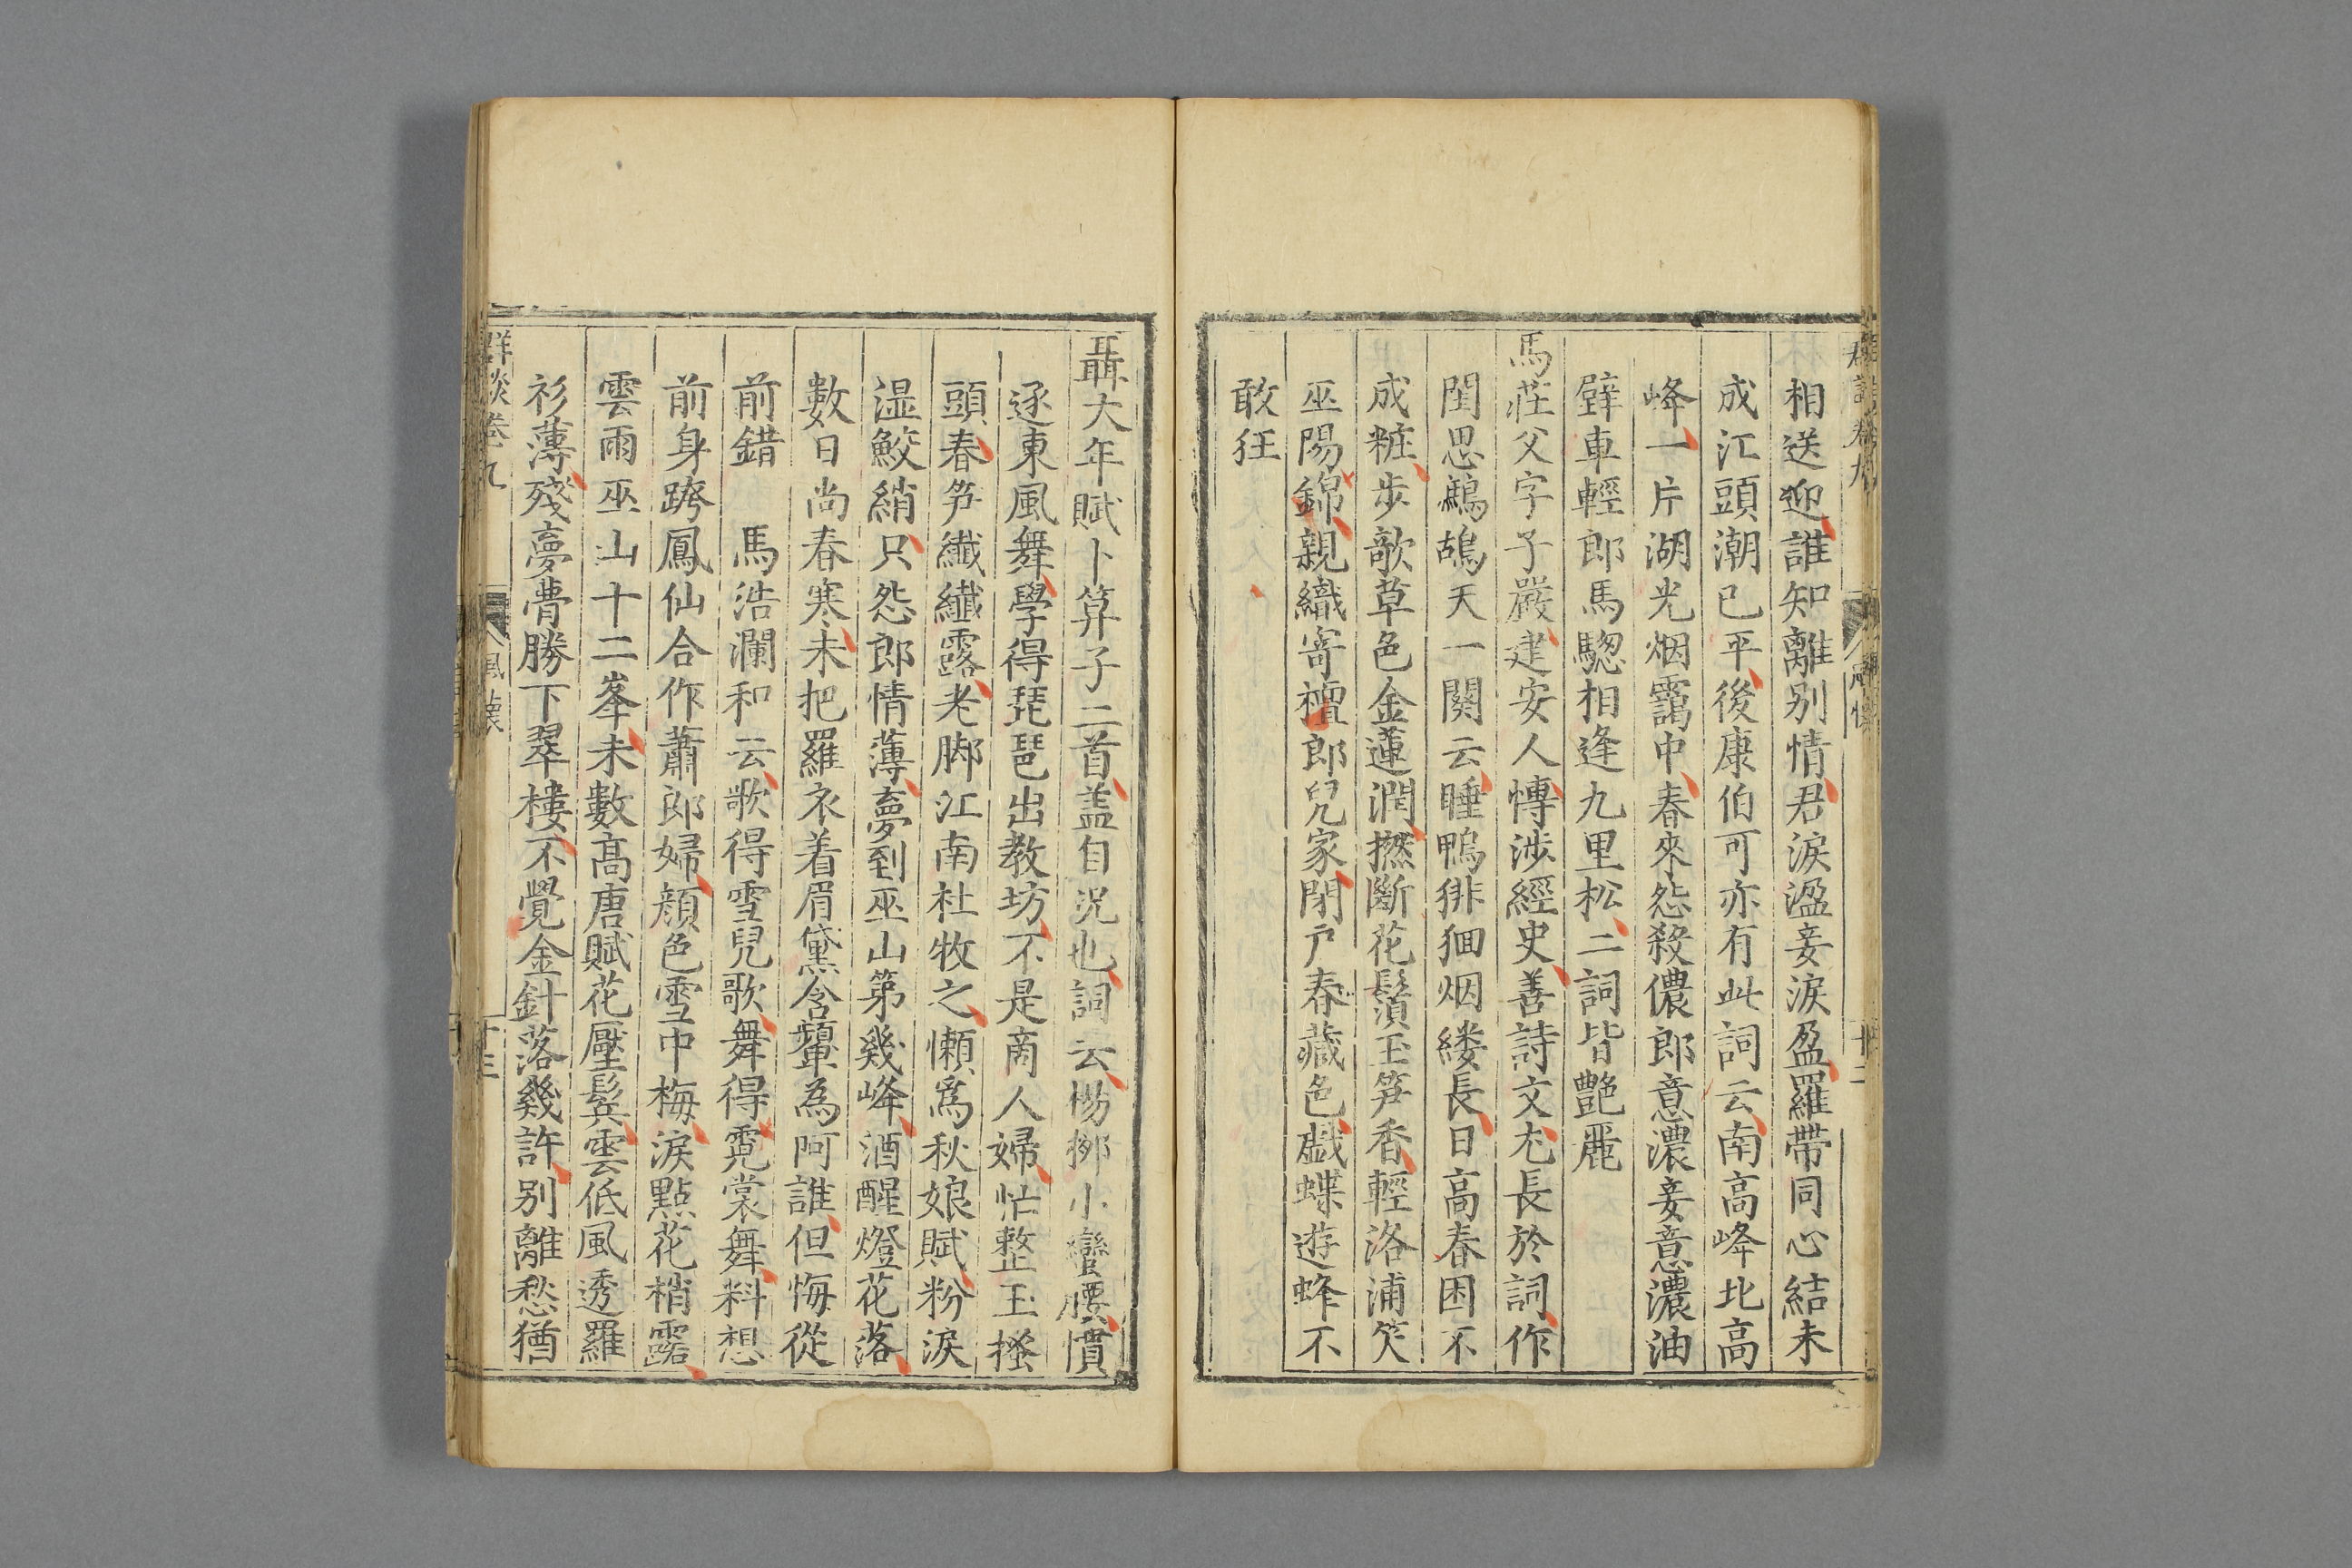 相送迎誰知離别情君淚溋妾淚盈羅帶同心結未
成江頭潮已平後康伯可亦有此詞云南高峰北高
峰一片湖光烟靄中春來怨殺儂郎意濃妾意濃油
壁車輕郎馬驄相逢九里松二詞皆艷麗
馬莊父字子嚴建安人愽涉經史善詩文尤長於詞作
閨思鷓鴣天一闋云睡鴨徘徊烟縷長日高春困不
成粧步歌草色金蓮潤撚斷花鬚玉笋香輕洛浦笑
巫陽錦親織寄檀郎兒家閉戶春藏色戯蝶遊蜂不
敢狂
聶大年賦卜算子二首盖自况也詞云楊栁小蠻腰慣
逐東風舞學得琵琶出教坊不是商人婦忙整玉搔
頭春笋纖纖露老脚江南杜牧之懶爲秋娘賦粉淚
湿鮫綃只怨郎情薄夢到巫山第幾峰酒醒燈花落
數日尚春寒未把羅衣着眉黛含顰為阿誰但悔從
前錯　馬浩瀾和云歌得雪兒歌舞得霓裳舞料想
前身跨鳳仙合作蕭郎婦顔色雪中梅淚點花梢露
雲雨巫山十二峯未數高唐賦花壓鬂雲低風透羅
衫薄殘夢瞢勝下翠樓不覺金針落幾許别離愁猶
群談卷九
風懷
十三